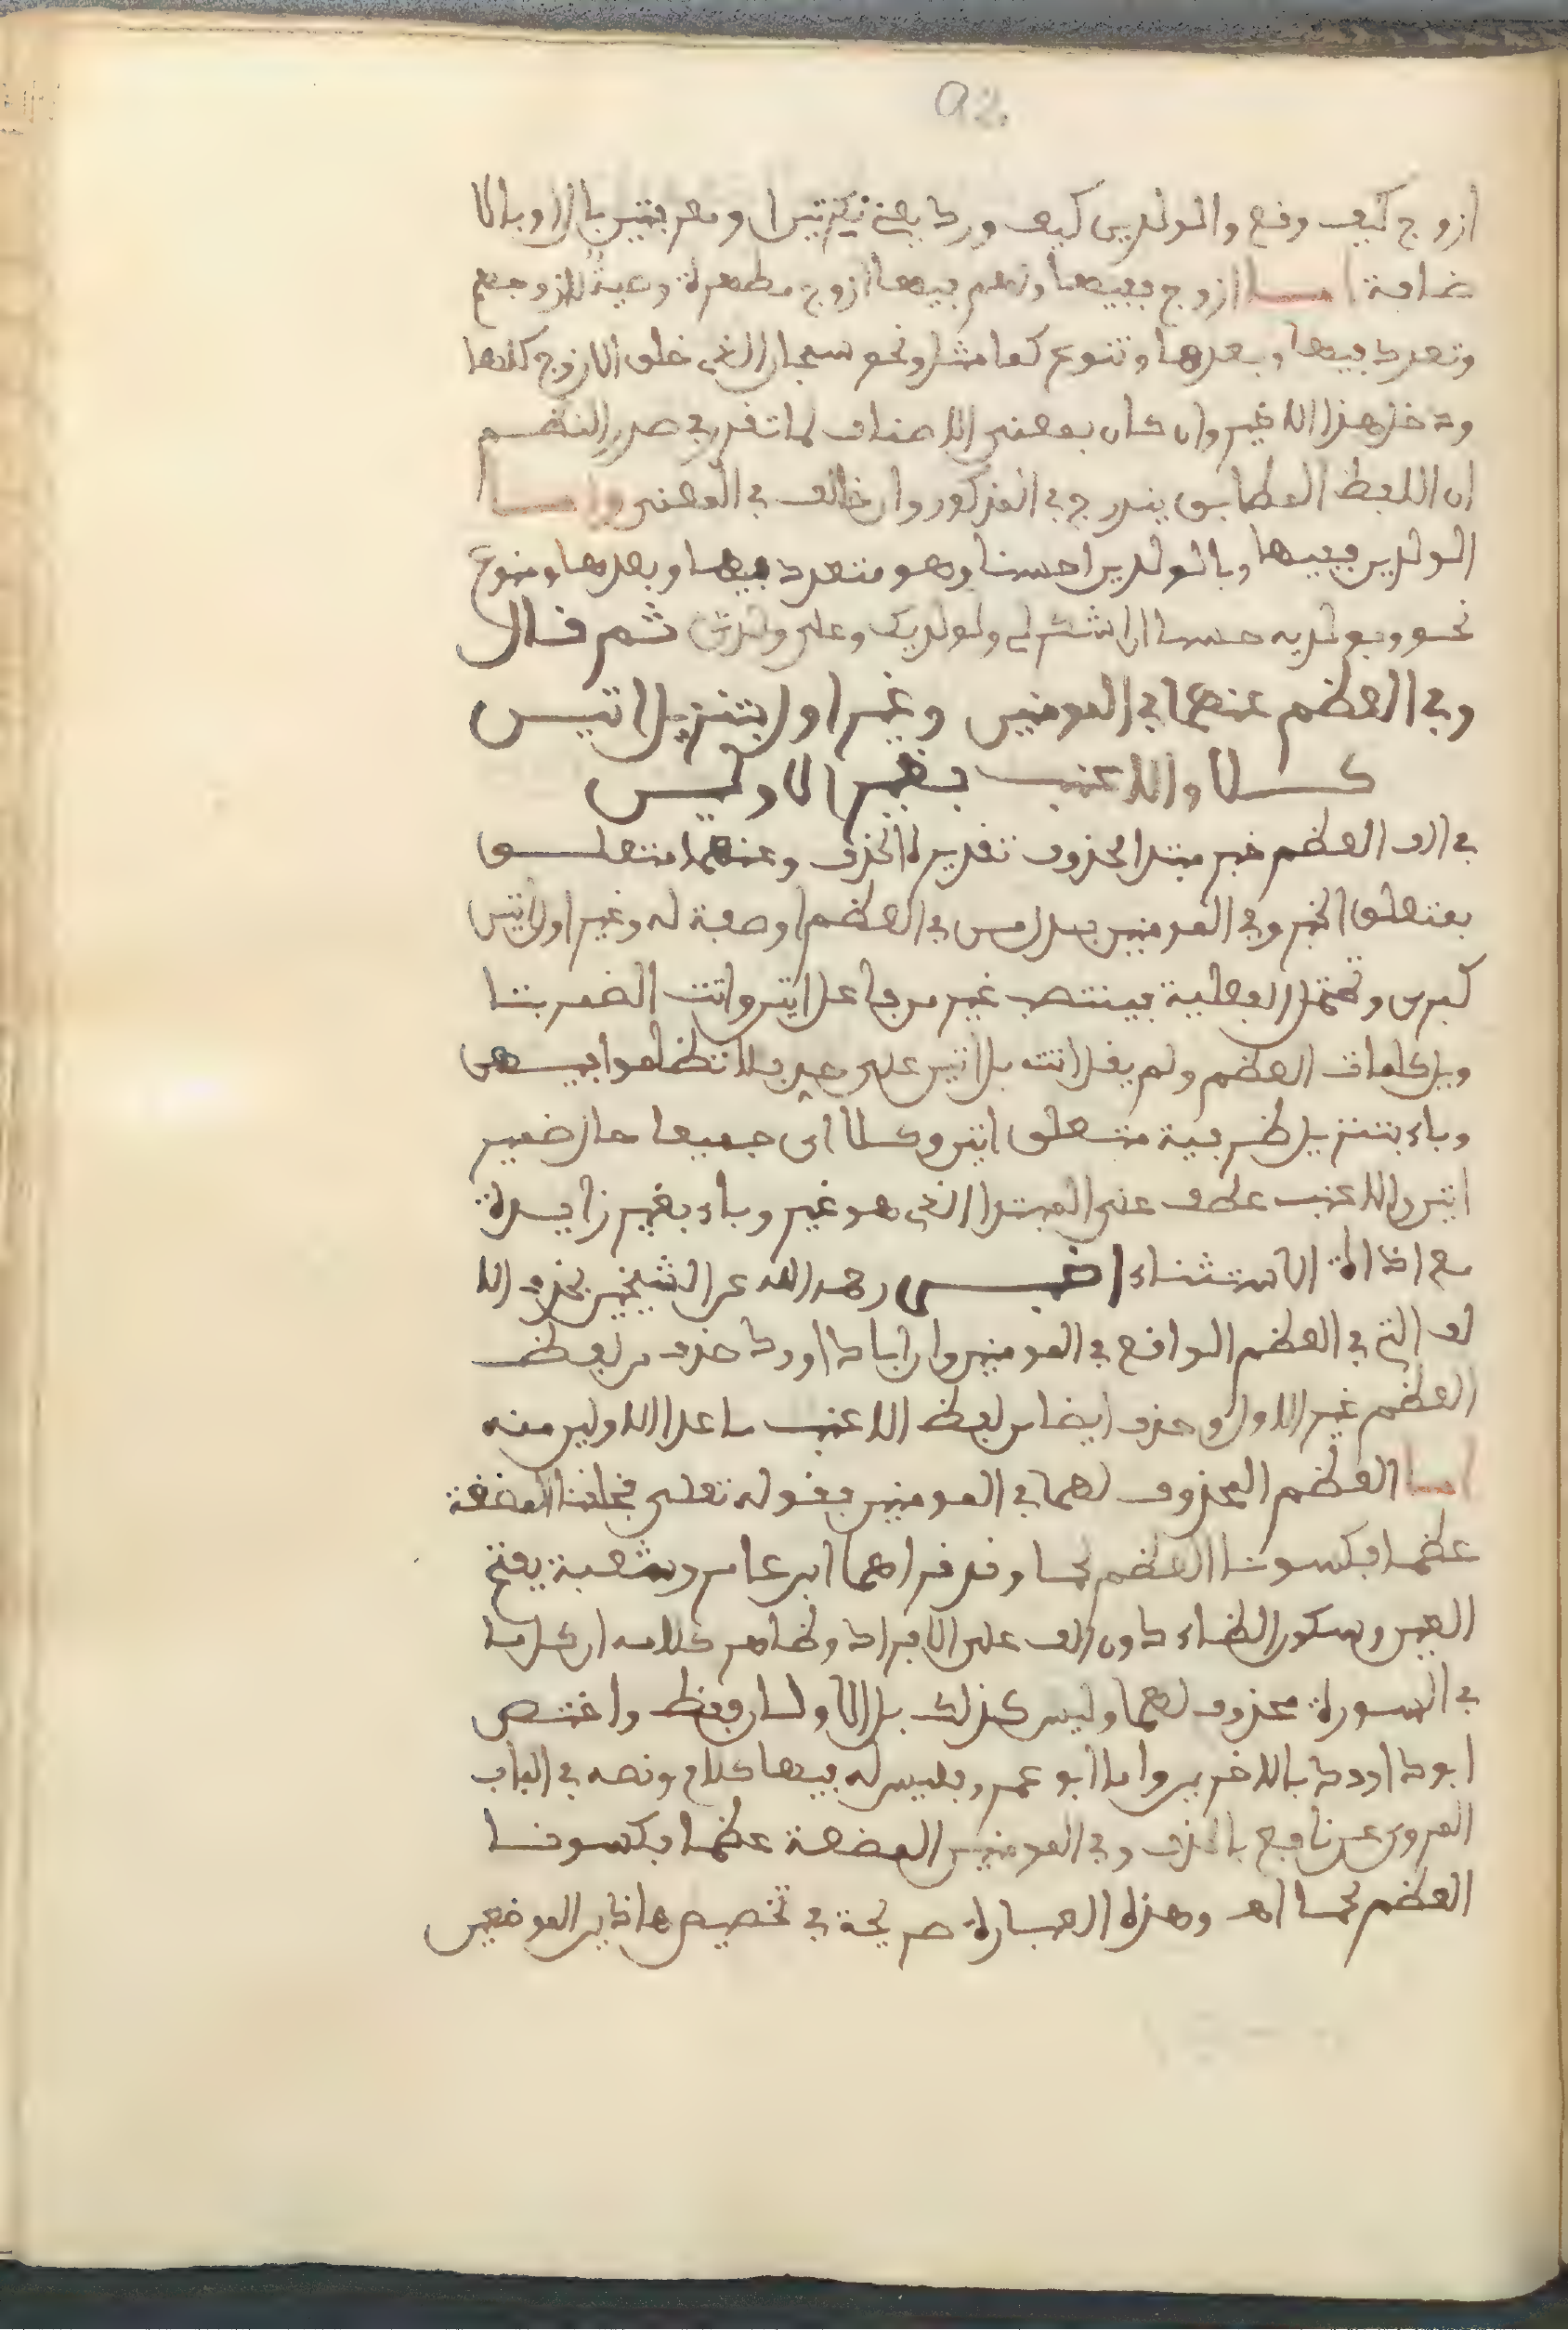 92.
ازوج كيف وقع والولدين كيف ورد يعني نكرتين او معرفتين بال او بالا
ضافة اما ازوج ففيها ولهم فيها ازوج مطهرة وصية لازوجهم
وتعدد فيها وبعدها وتنوع كما مثل ونحو سبحن الذي خلق الازوج كلها
ودخل هذا الاخير وان كان بمعنى الاصناف لما تقدر في صدر النظم
ان اللفظ المطابق يندرج في المذكور وان خالف في المعنى واما
الولدين ففيها وبالولدين احسنا وهو متعدد فيها وبعدها ومنوع
نحو وبولديه حسنا ان اشكر لي ولولديك وعلى ولدي ثم قال
وفي العظم عنهما في المومنين وغير اول بتنزيل اتين
كلا والاعنب بغير الاولين
في الف العظم خبر مبتدا محذوف تقديره الحذف وعنهما متعلق
بمتعلق الخبر وفي المومنين بدل من في العظم او صفة له وغير اول اتين
كبرى وتحتمل الفعلية فينتصب غير مرفاعل اتين وانت الضمير بتا
ويل كلمات العظم ولم يقل اتت بل اتين على حد فلا تظلموا فيهن
وباء بتنزيل ظرفية متعلق اتين وكلا اى جميعا حال ضمير
اتين والاعنب عطف على المبتدا الذي هو غير وباء بغير زايدة
مع اداة الاستثناء اخبر رحمه الله عن الشيخين بحذف الا
لف التي في العظم الواقع في المومنين وان ابا داوود حذف من لفظ
العظم غير الاول وحذف ايضا من لفظ الاعنب ما عدا الاولين منه
اما العظم المحذوف لهما في المومنين فقوله تعلى فخلقنا المضغة
عظما فكسونا العظم لحما وقد قراهما ابن عامر وشعبة بفتح
العين وسكون الظاء دون الف على الافراد وظاهر كلامه ان كل ما
في السورة محذوف لهما وليس كذلك بل الاولان فقط واختص
ابو داوود بالاخرين واما ابو عمرو فليس له فيها كلام ونصه في الباب
المروى عن نافع بالحذف وفي المومنين المضغة عظما فكسونا
العظم لحما اهـ وهذه العبارة صريحة في تخصيص هاذين الموضعين